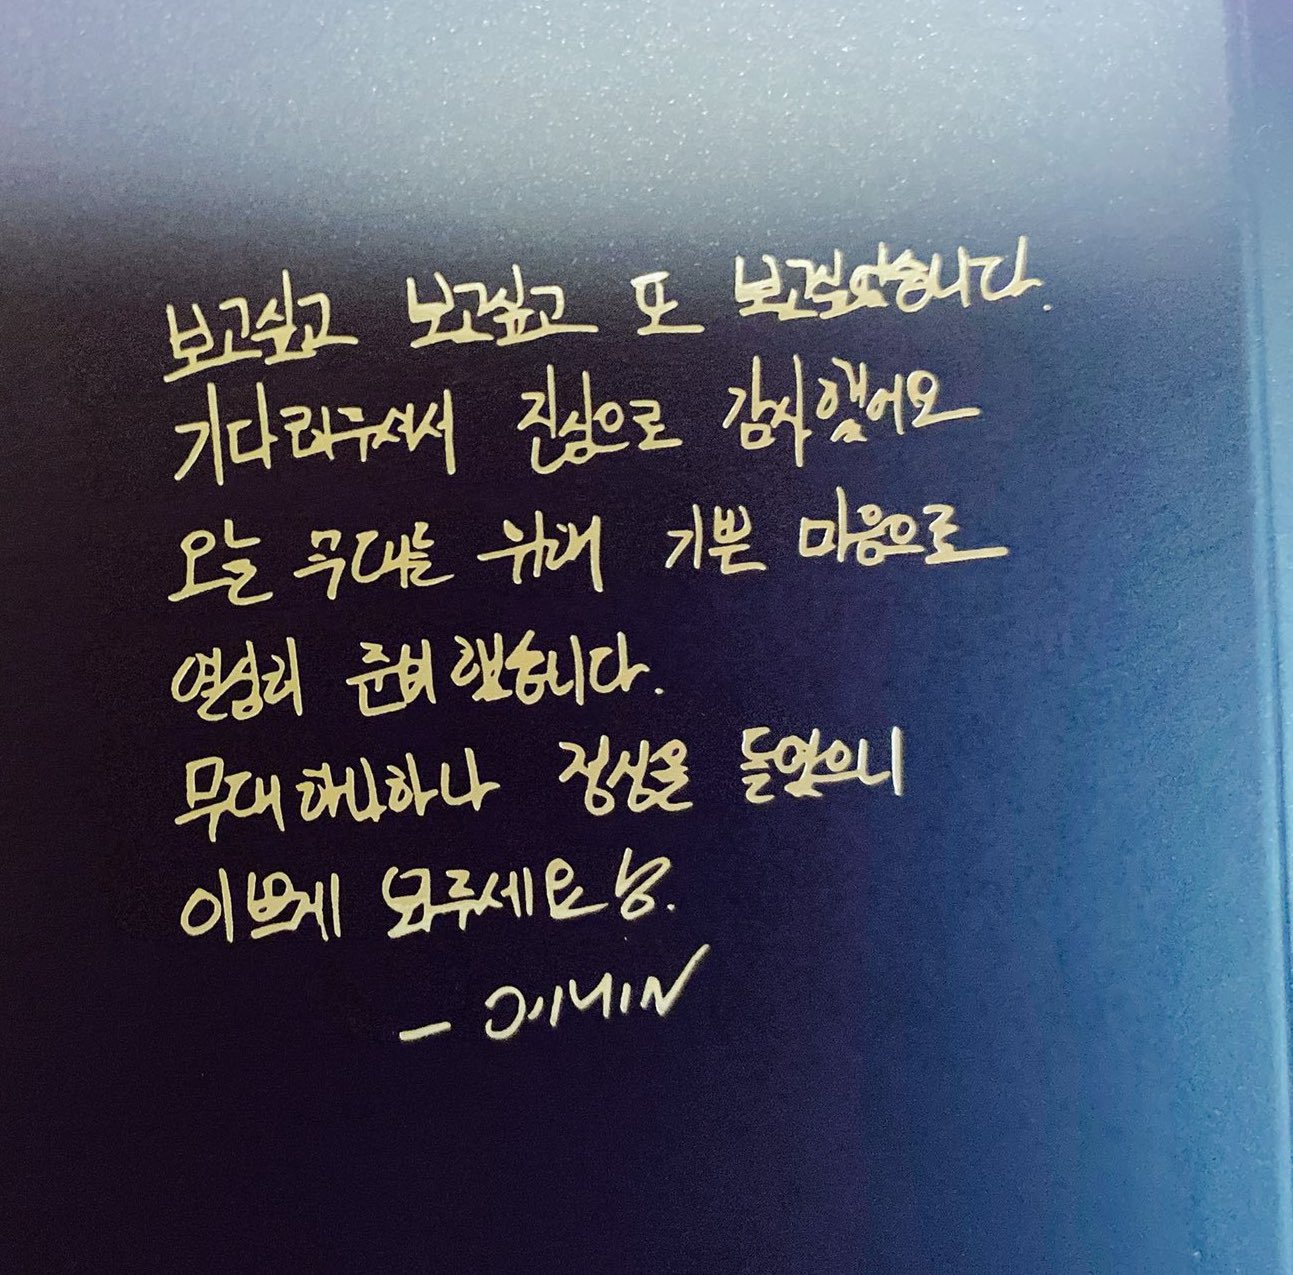 보고싶고 보고싶고 또 보고싶었습니다.
기다려주셔서 진심으로 감사했어요
오늘 무대를 위해 기쁜 마음으로
열심히 준비했습니다.
무대 하나하나 정성을 들였으니
이쁘게 봐주세요잉.
- JIMIN